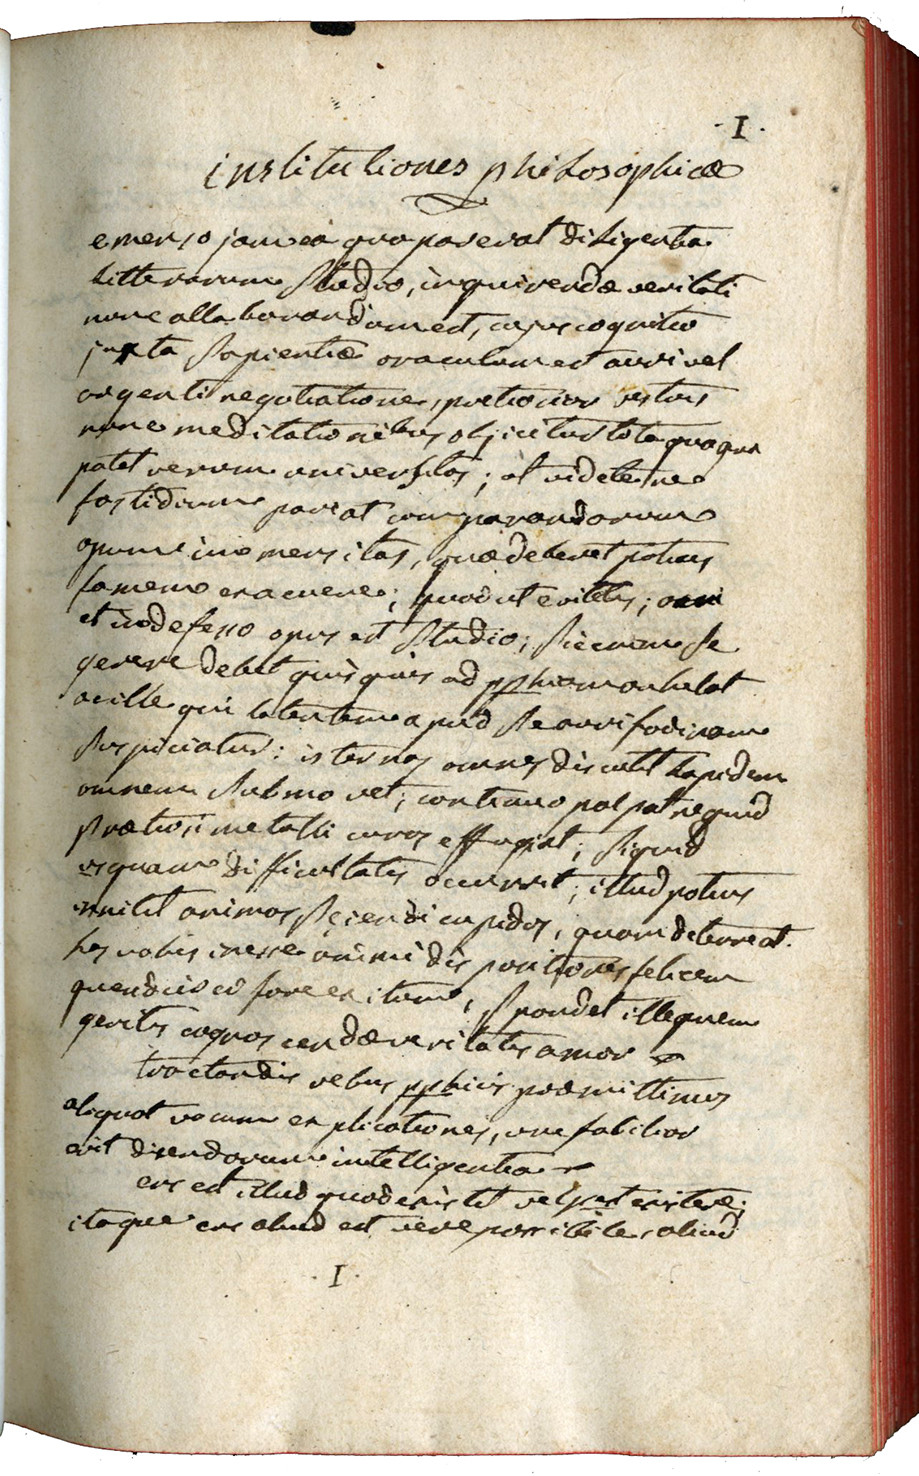 · I ·
institutiones philosophicæ
emenso jam eâ qua par erat diligentia
litterarum studio, inquirendæ veritati
nunc allaborandum est, cujus cognitio
juxta sapientiæ oraculum est auri vel
argenti negotiatione, pretiosior vestris
nunc meditationibus objicitur tota quaqua
patet rerum universitas; at videte ne
fastidium pariat comparandarum
opum immensitas, quæ deberet potius
famem exacuere; quod ut evitetis; acri
et indefesso opus est studio; sic enim se
gerere debet quisquis ad pphiam anhelat
ac ille qui latentem apud se auri fodinam
suspiciatur: is terras omnes discutit lapidem
omnem submovet; contrario palpat ne quid
prætiosi metalli curas effugiat; si quid
usquam difficultatis occurrit, illud potius
irritat animos sciendi cupidos, quam deterreat.
has vobis inesse animi dispositiones felicem
quendius eo fore exitum, spondet ille quem
geritis cognoscendæ veritatis amor
tractandis rebus pphicis præmittimus
aliquot vocum explicationes, une facilior
erit dicendorum intelligentia
ens est illud quod existit vel potest existere;
itaque ens aliud est vere possibile, aliud
· I ·